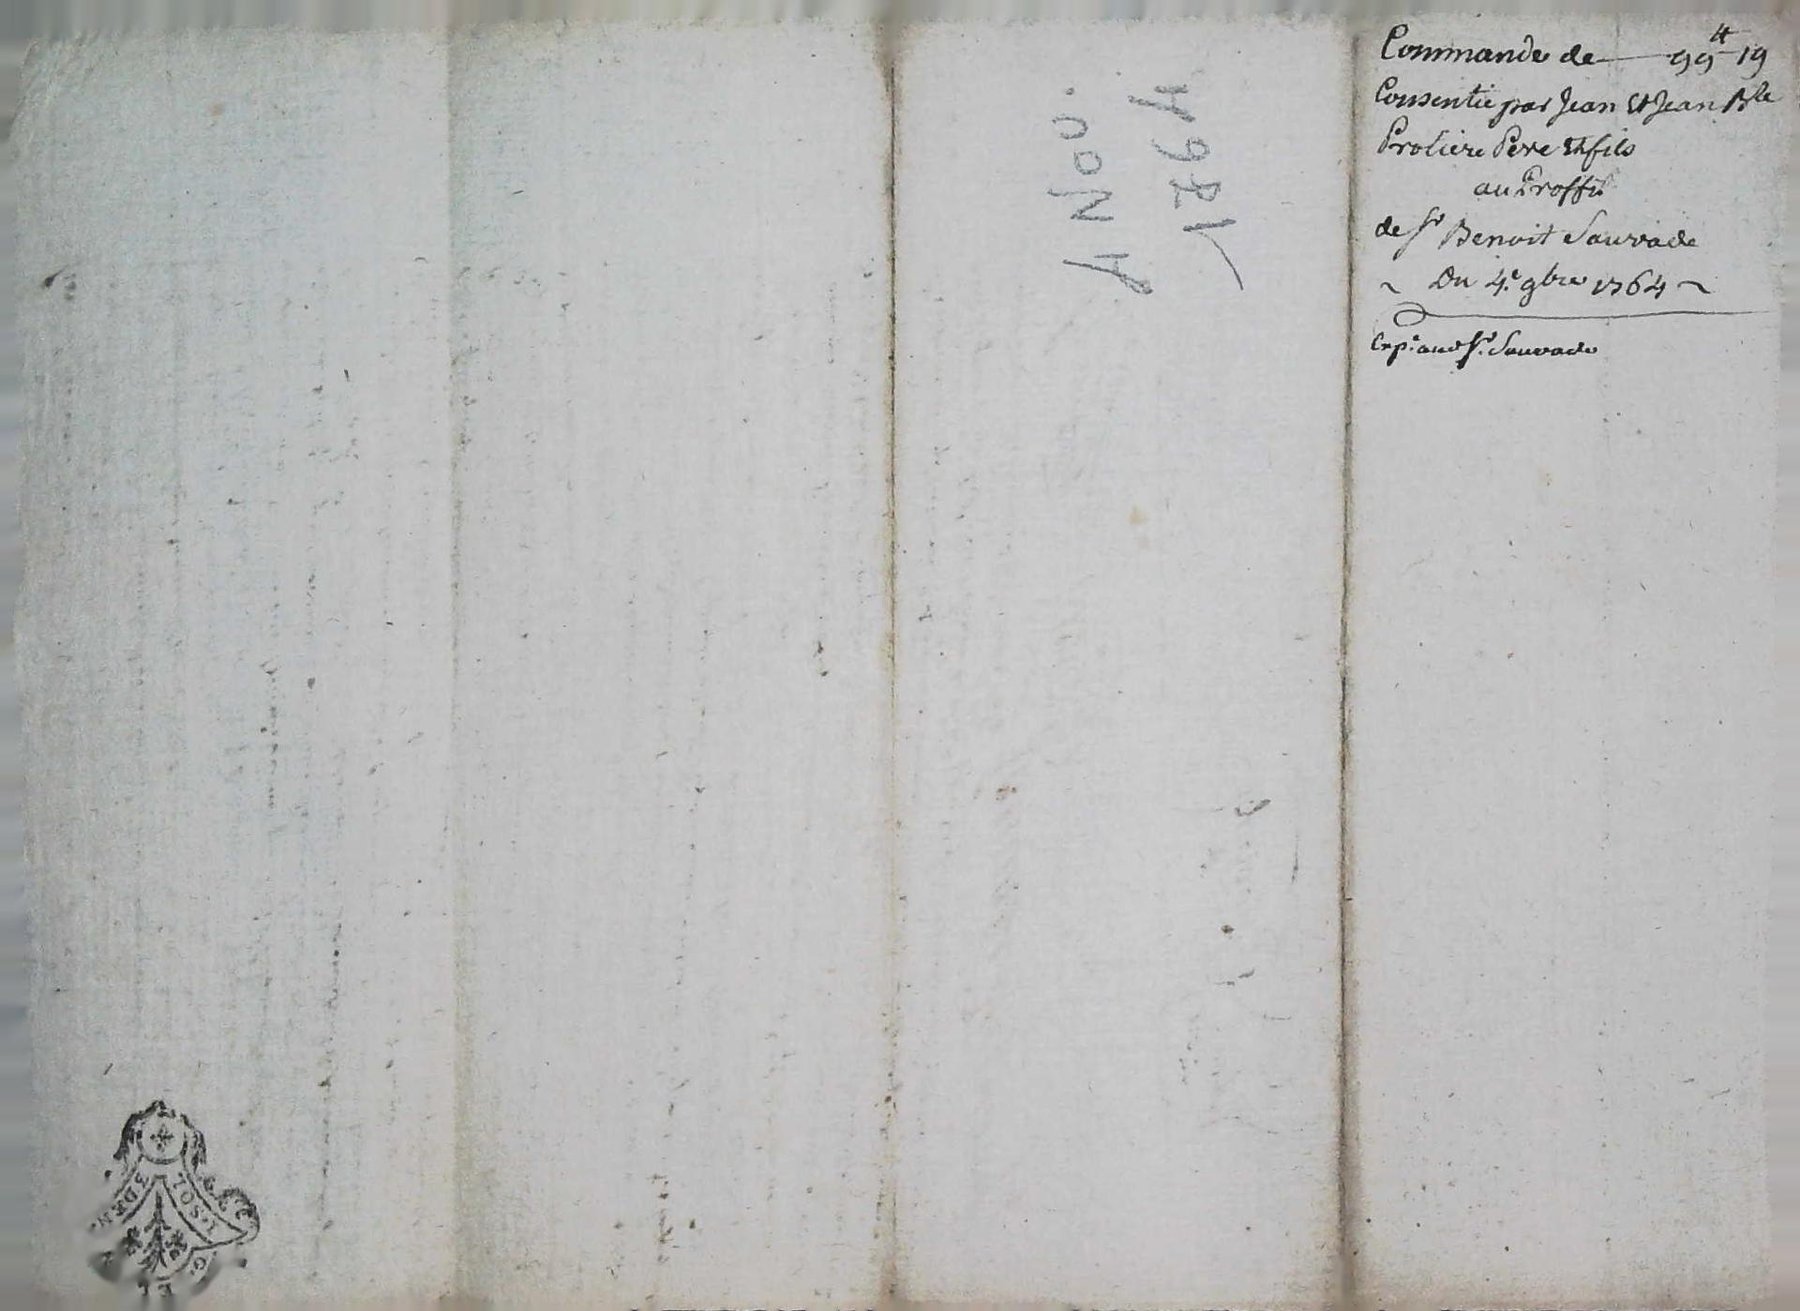 Commande de — 99# 19
Consentie par Jean Et Jean Bte
Proliere Pere Et fils
au Proffit
de Sr Benoit Sauvade
~ Du 4e 9bre 1764 ~
Expe aud Sr. Sauvade
4 Nov.
1764
1. SOL
3 DEN.